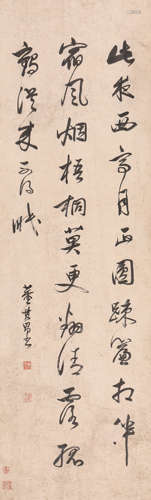 此夜西亭月正圓疎簾相伴
宿風烟梧桐莫更翻清露孤
鶴從来不得眠
董其昌書